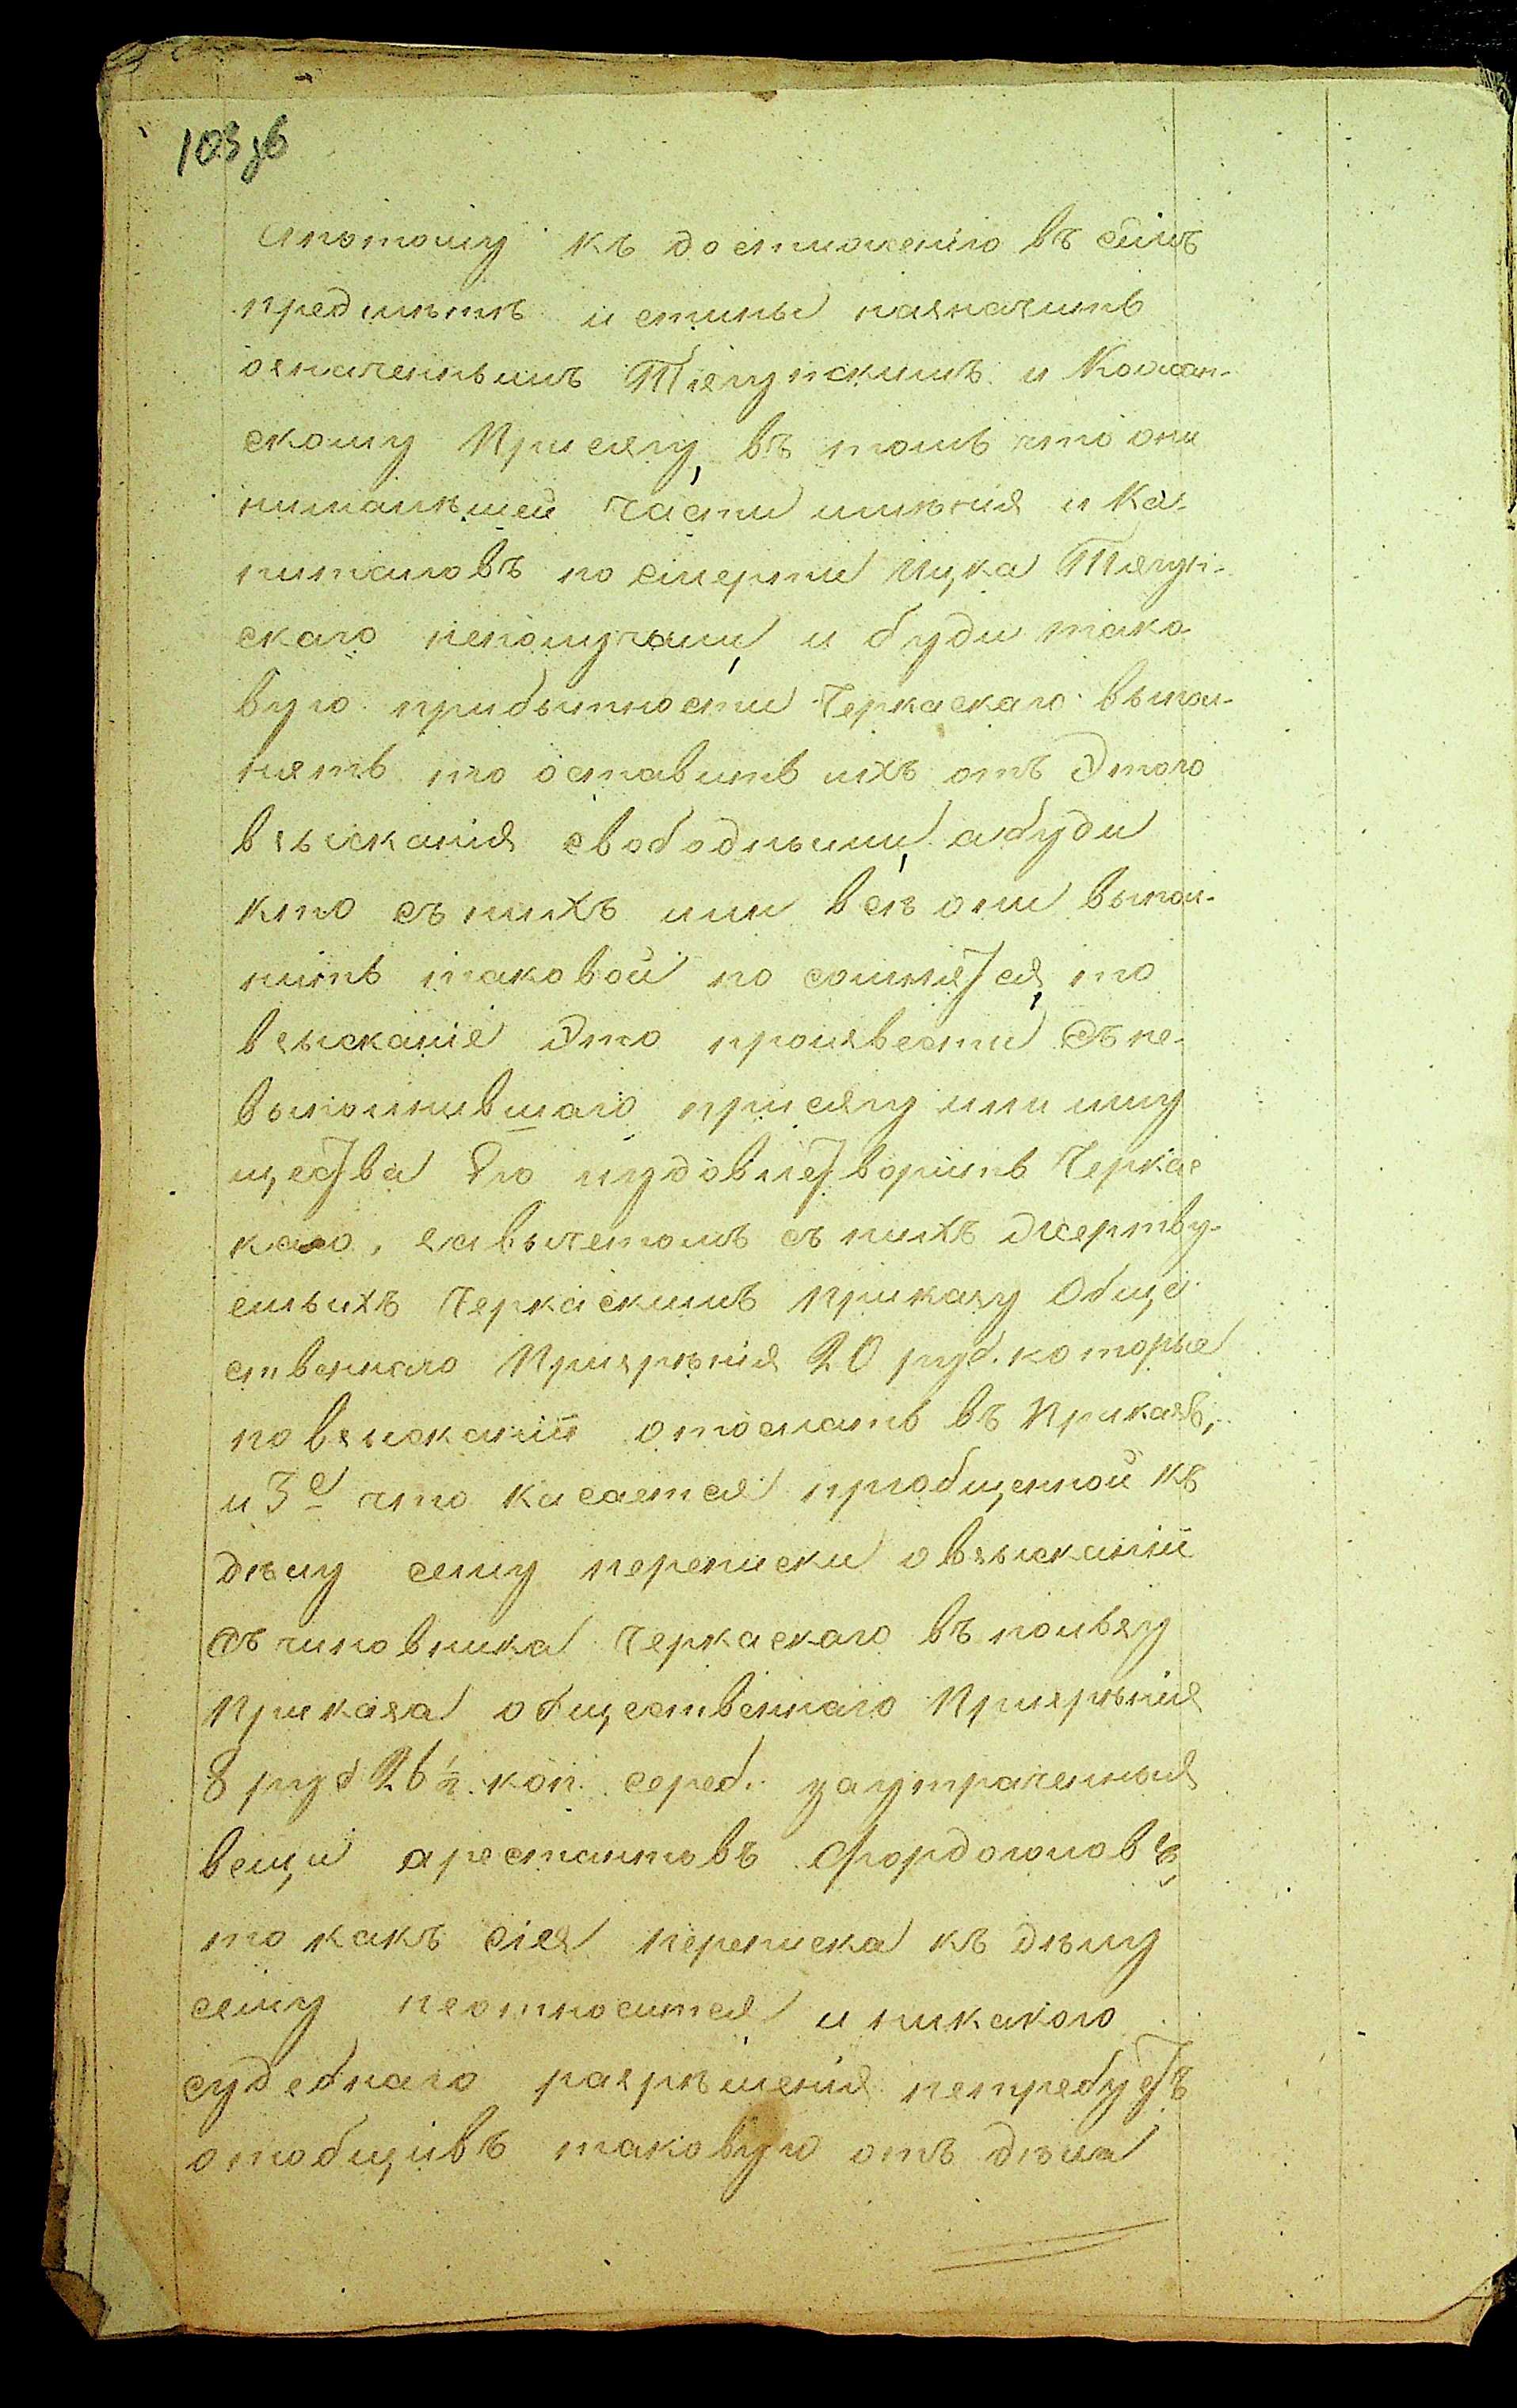 103 зв
ипотому къ достиженію въ семъ
предметѣ истины назначить
означеннымъ Тягунскимъ и Кол­ман-
скому Присягу, въ томъ что они
нималѣйшей части имѣнія и Ка-
питаловъ по смерти Ицка Тягун-
скаго неполучали, и буди тако
вую прибытности Черкаскаго выпол-
нятъ то оставить ихъ отъ Этого
взысканія свободными, абуди
кто съ нихъ или всѣ они выпол-
нить таковой не согласятся, то
взысканіе Это произвести Съ не-
выполнившаго присягу или иму
щества Его иудовлетворить Черкас
каго, завычетомъ съ нихъ жертву-
емыхъ Черкаскимъ Приказу Обще
ственнаго Призрѣнія 20 руб. которые
по взысканіи отослать въ Приказъ,
и 3е что касается приобщенной къ
дѣлу сему переписки овзысканіи
Съ чиновника Черкаскаго въ пользу
Приказа общественнаго Призрѣнія
8 руб 26 ½ коп. сереб. заутраченныя
вещи арестантовъ
то какъ сія переписка къ дѣлу
сему неотносится и никакого
судебнаго разрѣшенія нетребуетъ
отобщивъ таковую отъ дѣла